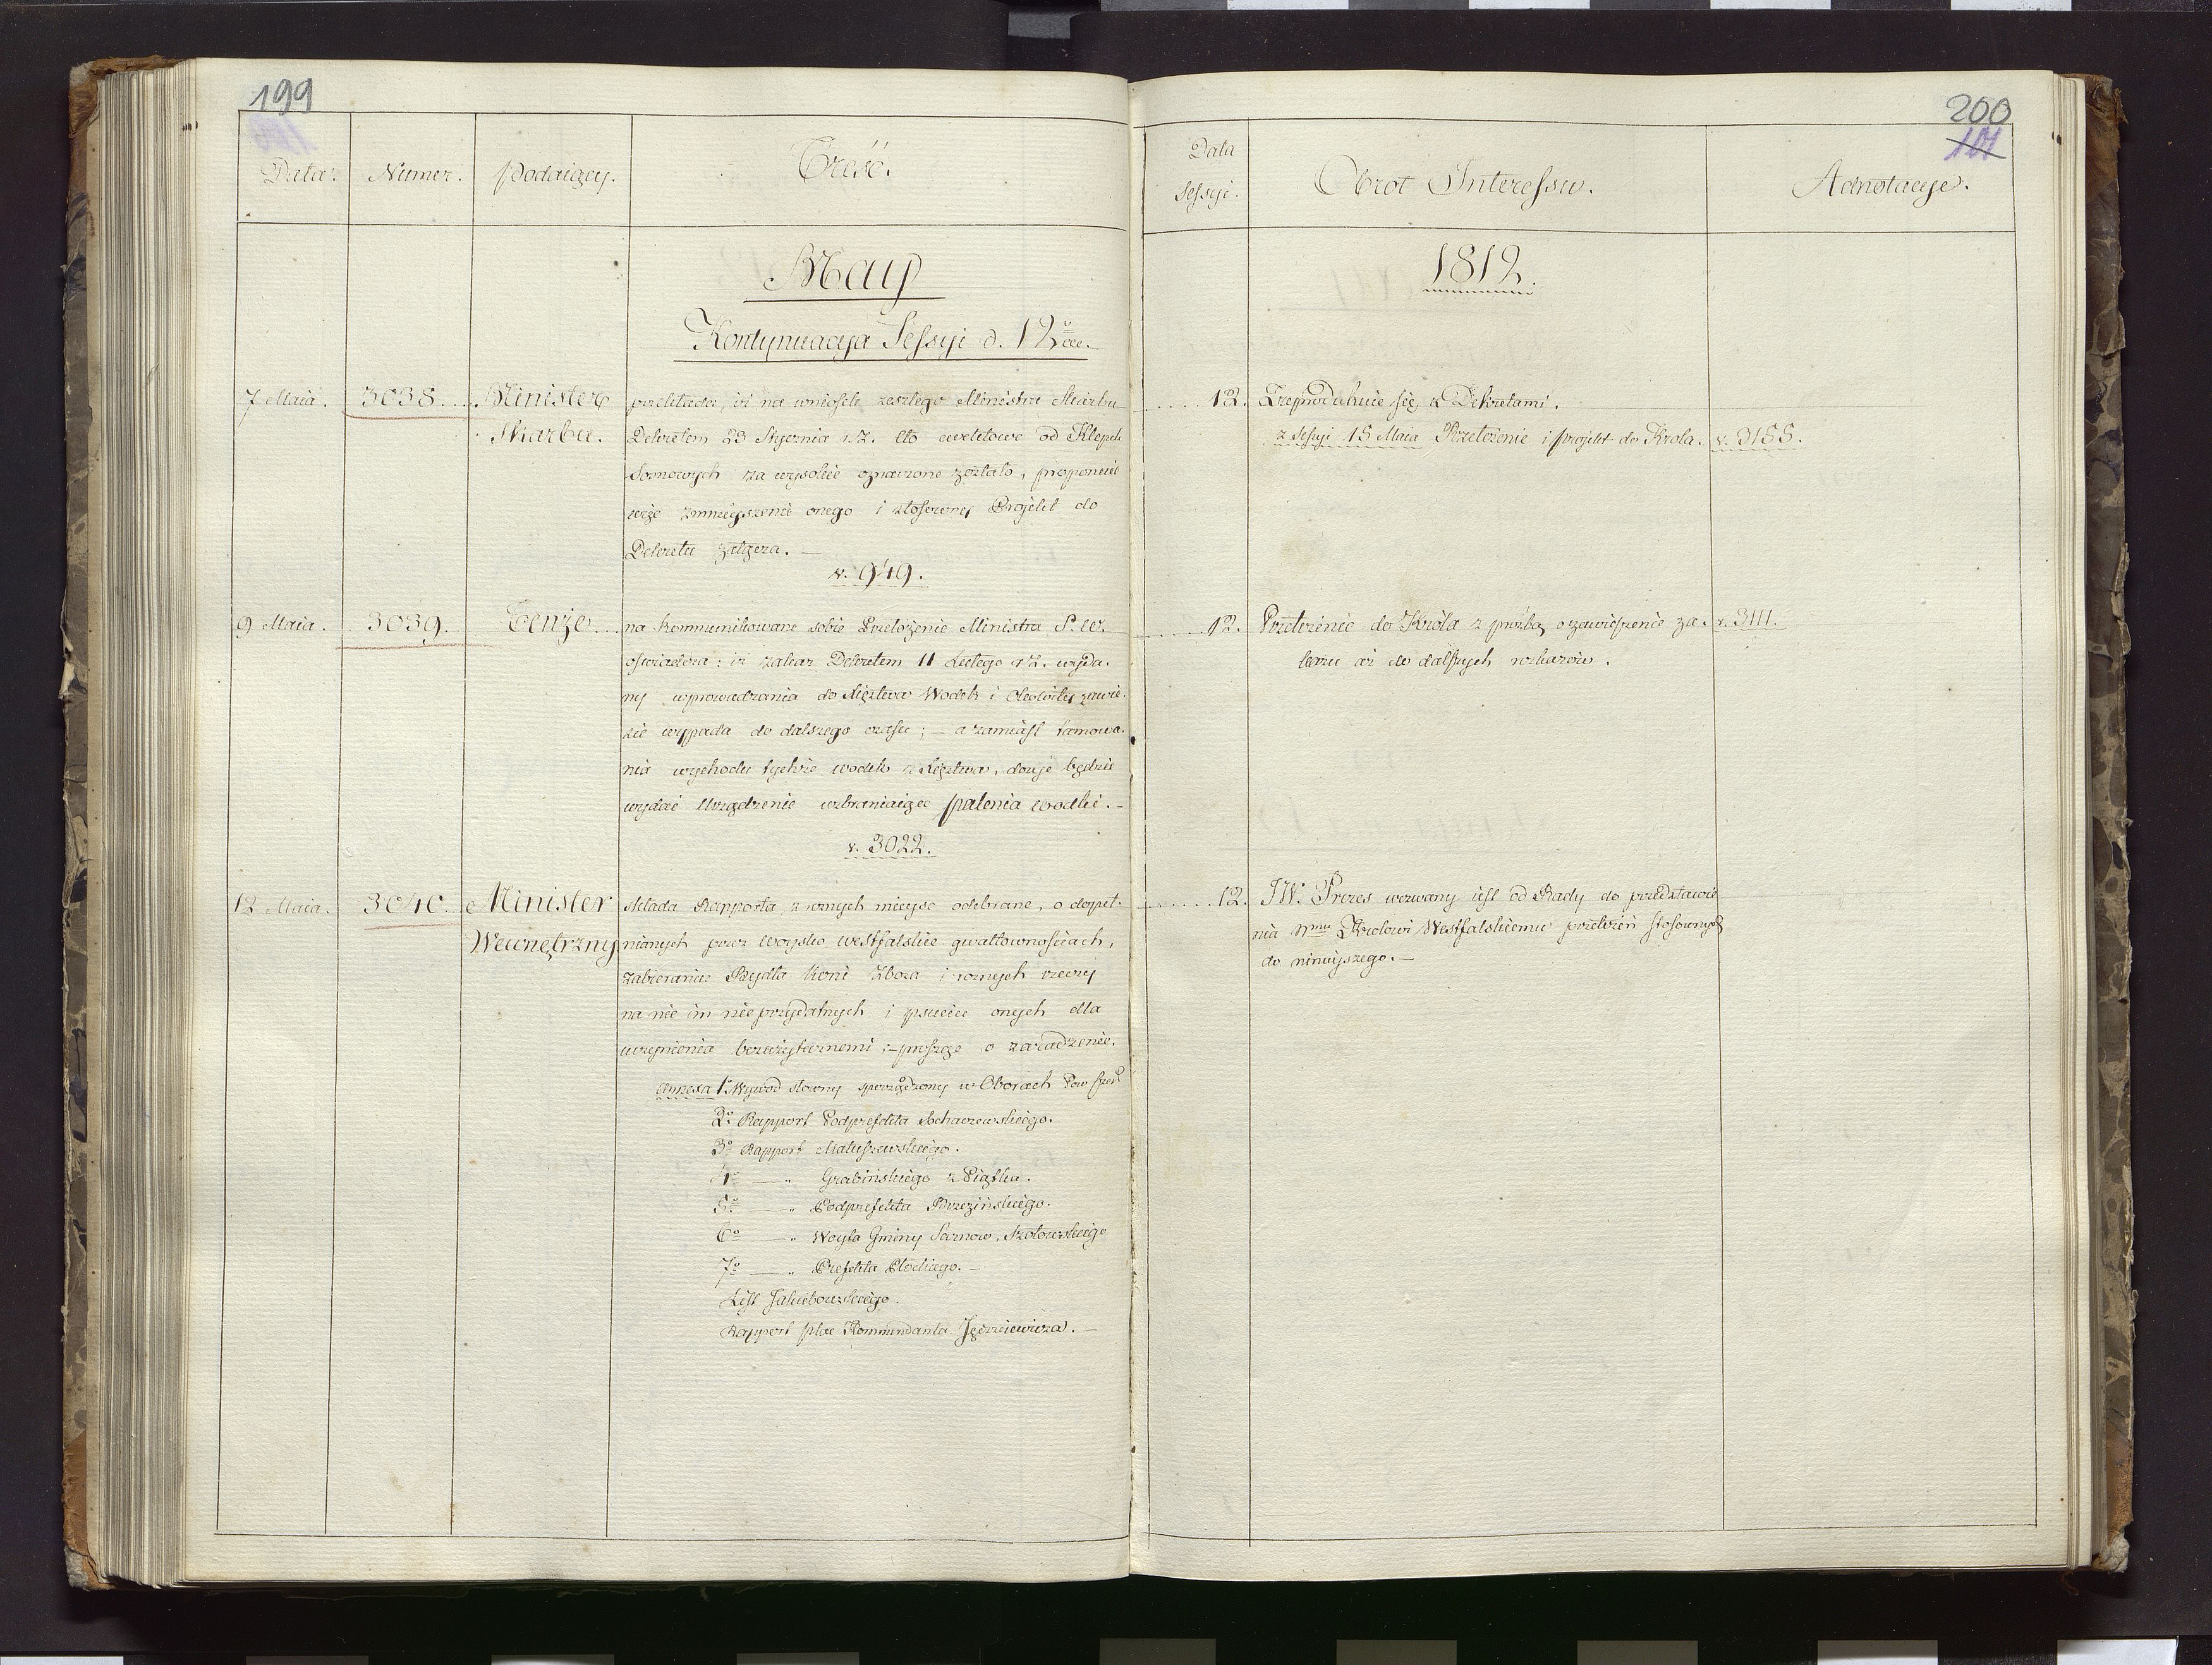 199
Data.
Numer.
Podaiący.
Treść.
May
Kontynuacya Sessyi d. 12
7 Maia. 3038. Minister
Skarbu.
przekłada, iż na wniosek zeszłego Ministra Skarbu
Dekretem 23 Stycznia r. z. cło od Klepek
Sosnowych za wysokie oznaczone zostało, proponuie
więc zmnieyszenie onego i stosowny Projekt do
Dekretu załącza. —
v. 949.
9 Maia. 3039. Tenże
na kommunikowane sobie Przełożenie Ministra S. W.
oświadcza: iż zakaz Dekretem 11 Lutego r. z. wyda-
ny wprowadzania do Księztwa Wodek i Okowitę zawie-
sić wypada do dalszego czasu; — a zamiast tamowa-
nia wychodu tychże wodek z Księztwa, dosyć będzie
wydać Urządzenie wzbraniaiące palenia wodki. —
v. 3022.
12 Maia. 3040. Minister
Wewnętrzny
składa Rapporta z rożnych mieysc odebrane, o dopeł-
nianych przez woysko westfalskie gwałtownościach,
zabieraniu Bydła koni zboża i rożnych rzeczy
na nic im nieprzydatnych i psuciu onych dla
uczynienia bezużytecznemi; – prosząc o zaradzenie.
Annexa 1° Wywod słowny sporządzony w Oborach Pow
2° Rapport Podprefekta Sochaczewskiego.
3° Rapport Matuszewskiego.
4° — " Grabińskiego z Piątku.
5° — " Podprefekta Brzezińskiego.
6° — " Woyta Gminy Sarnow,
7° — " Prefekta Płockiego. —
List Jakubowskiego.
Rapport plac Kommendanta
200
101
Data
Sessyi.
Obrot Interessu.
Adnotacye.
1812.
12. Zreprodukuie się z Dekretami.
z Sessyi 15 Maia Przełożenie i projekt do Krola. v. 3155.
12. Przełożenie do Króla z prośbą o zawieszenie za- v. 3111.
kazu aż do dalszych rozkazów.
12. JW. Prezes wezwany iest od Rady do przedstawie-
nia Nmu Krolowi Westfalskiemu przełożeń stosownych
do ninieyszego. —